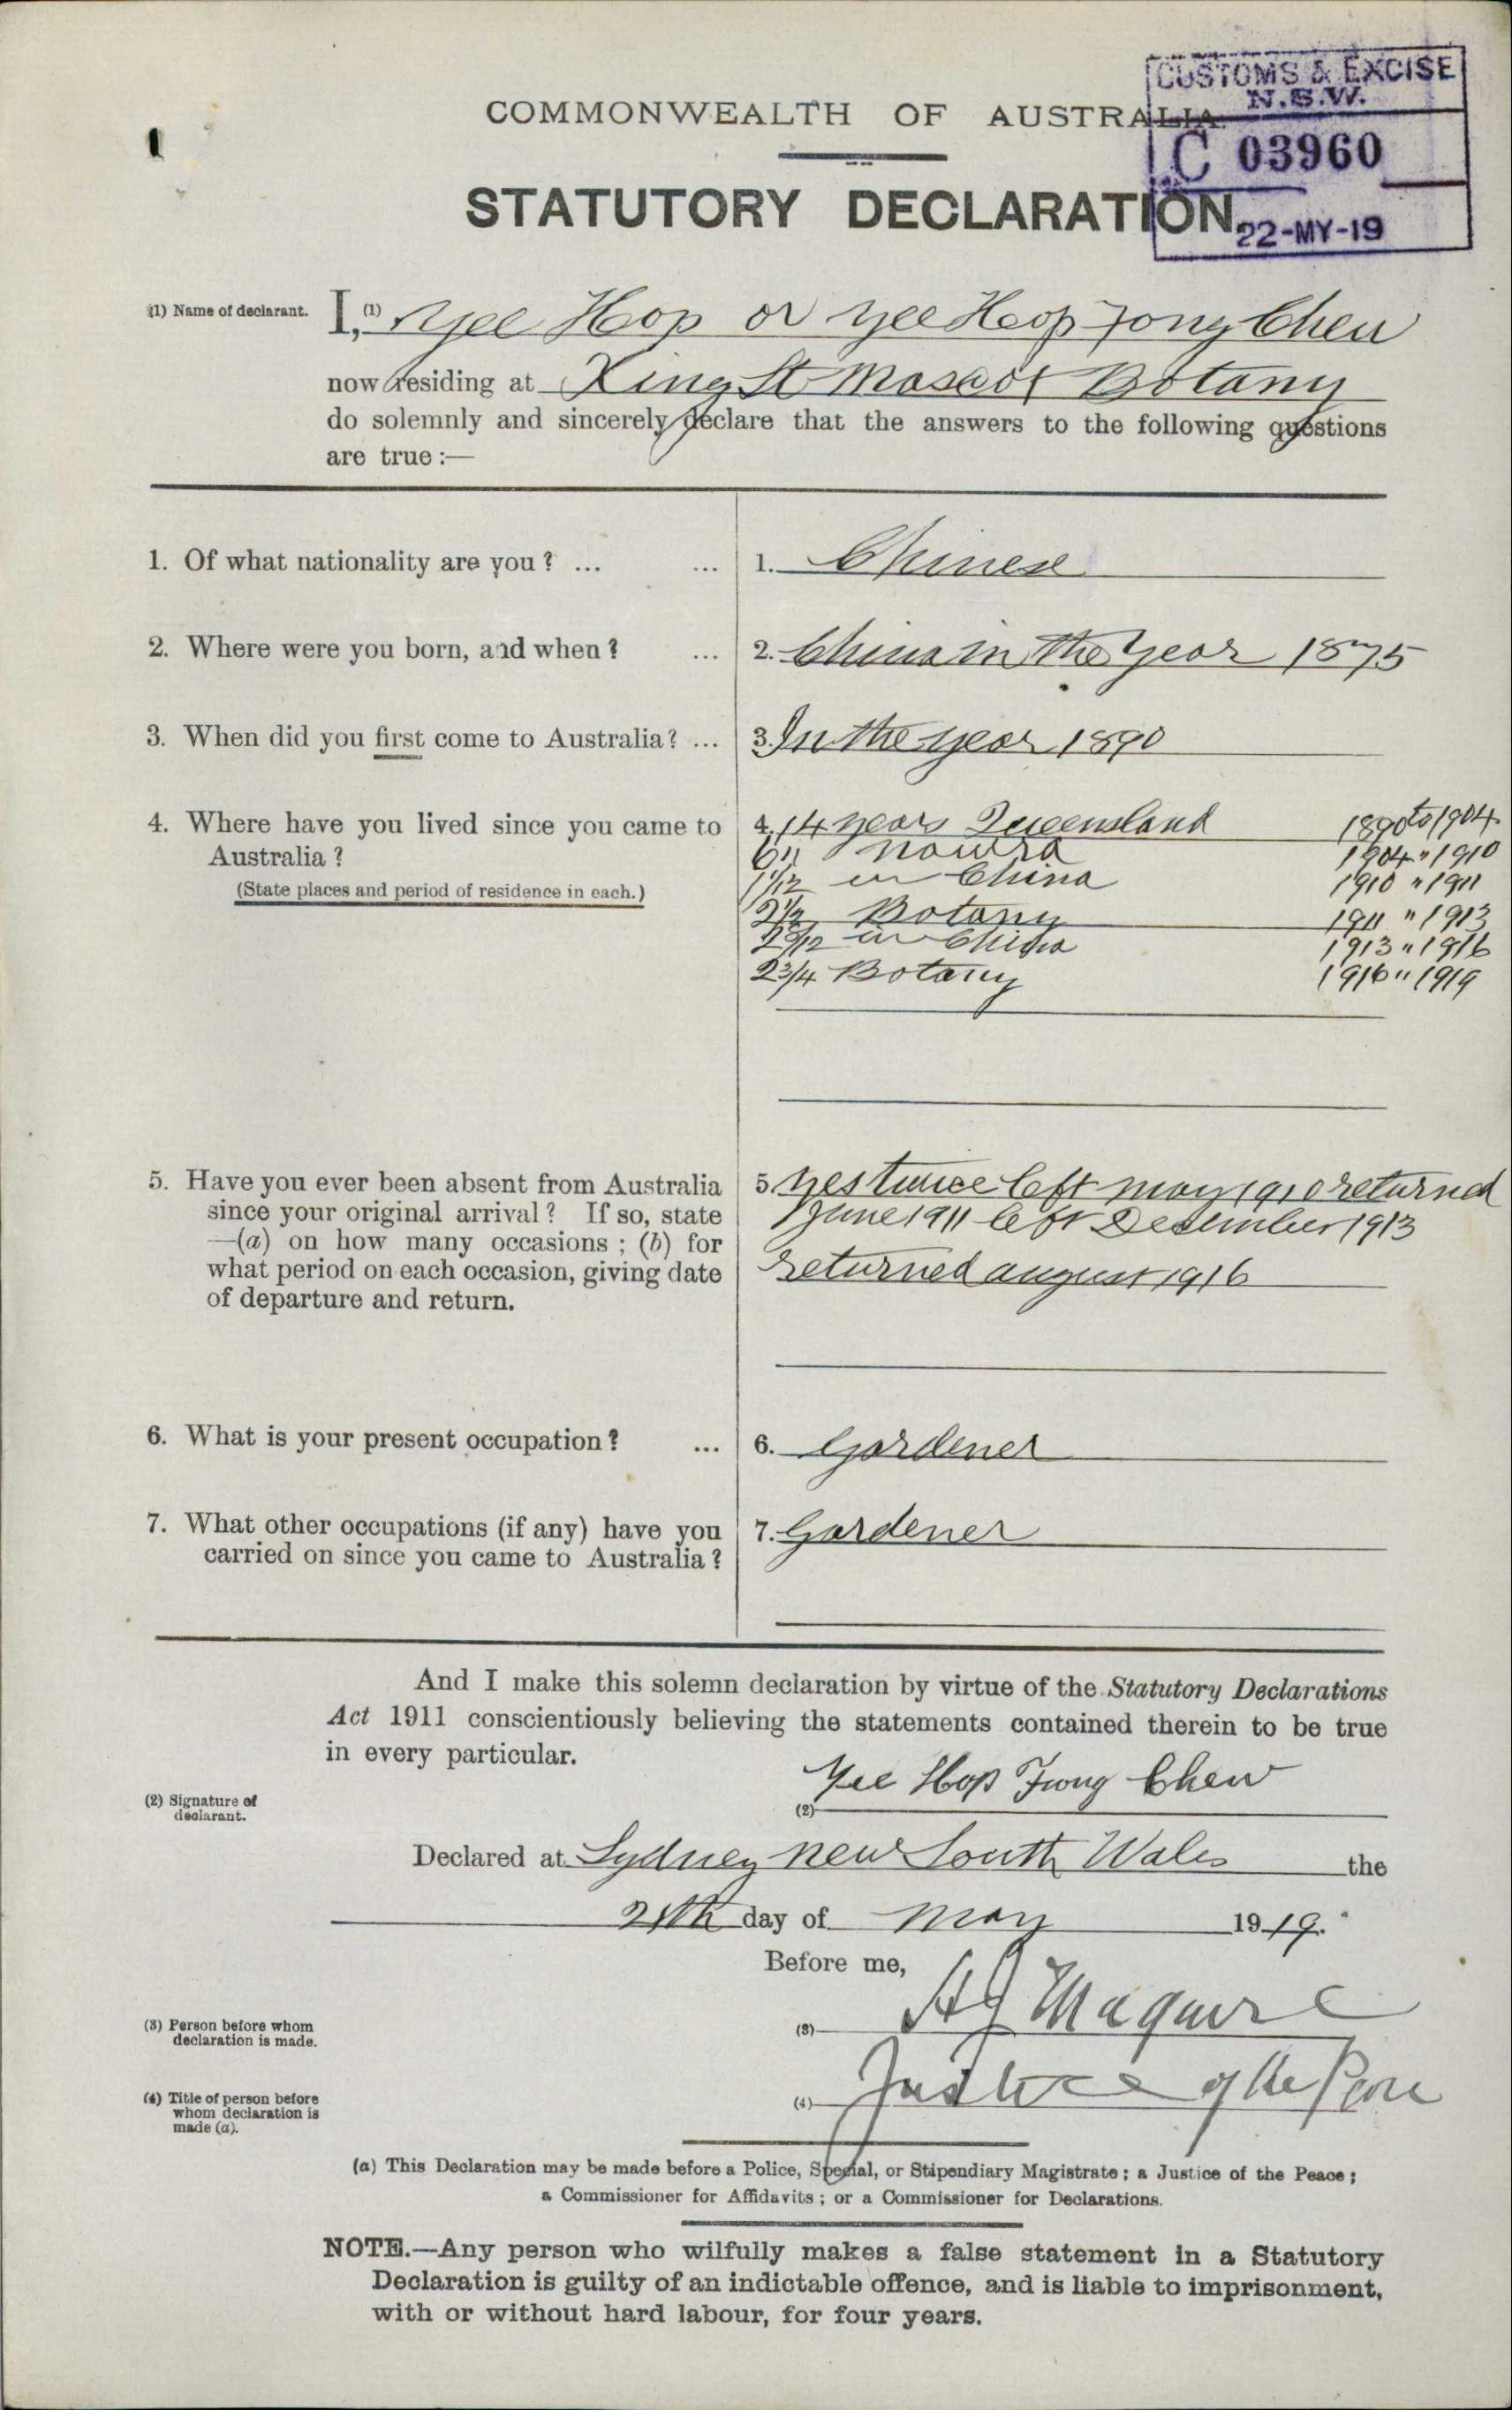 CUSTOMS & EXCISE
N.S.W.
C 03960
22-MY-19
COMMONWEALTH OF AUSTRALIA.
STATUTORY DECLARATION.
(1) Name of declarant.
I, (1) Yee Hop or Yee Hop Fong Chew
now residing at King St Mascot Botany
do solemnly and sincerely declare that the answers to the following questions
are true :—
1. Of what nationality are you ? ... ... 1. Chinese
2. Where were you born, and when ? ... 2. China in the Year 1875
3. When did you first come to Australia? ... 3. In the year 1890
4. Where have you lived since you came to 4. 14 years Queensland 1890 to 1904
Australia ? 6 " nowra 1904 " 1910
(State places and period of residence in each.) 1 1/12 in China 1910 " 1911
2 1/2 Botany 1911 " 1913
2 8/12 in China 1913 " 1916
2 3/4 Botany 1916 " 1919
5. Have you ever been absent from Australia 5. yes twice left may 1910 returned
since your original arrival ? If so, state June 1911 left Desember 1913
—(a) on how many occasions ; (b) for
what period on each occasion, giving date returned august 1916
of departure and return.
6. What is your present occupation ? ... 6. Gardener
7. What other occupations (if any) have you 7. Gardener
carried on since you came to Australia ?
And I make this solemn declaration by virtue of the Statutory Declarations
Act 1911 conscientiously believing the statements contained therein to be true
in every particular.
(2) Signature of
declarant.
(2) Yee Hop Fong Chew
Declared at Sydney new South Wales the
21th day of may 1919.
Before me,
(3) Person before whom
declaration is made.
(3) Maguire
(4) Title of person before
whom declaration is
made (a).
(4) Justice of the Peace
(a) This Declaration may be made before a Police, Special, or Stipendiary Magistrate ; a Justice of the Peace ;
a Commissioner for Affidavits ; or a Commissioner for Declarations.
NOTE.—Any person who wilfully makes a false statement in a Statutory
Declaration is guilty of an indictable offence, and is liable to imprisonment,
with or without hard labour, for four years.